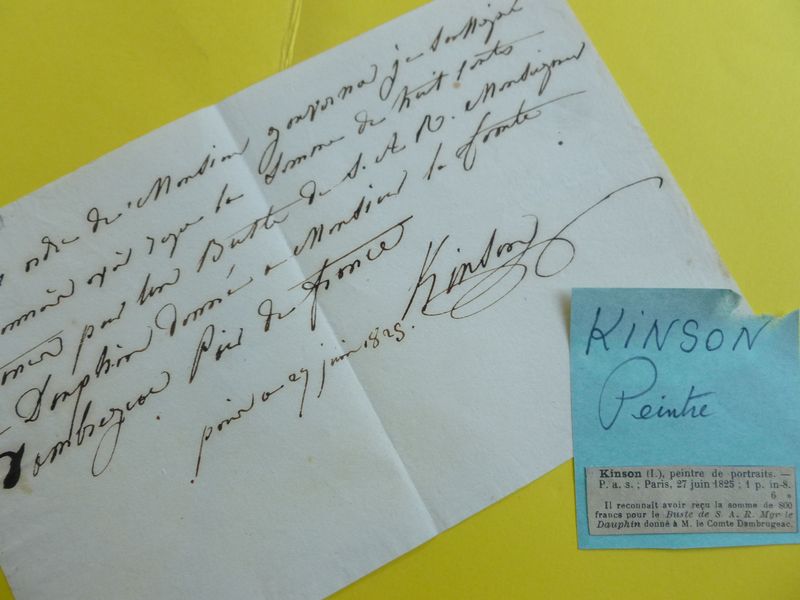 ordre de Monsieur gouverna je soussigné
avoir reçu la Somme de huit cents
pour un Buste de S. A. R. Monseigneur
Dauphin donné a Monsieur le Comte
Dombregeac Pair de france
27 juin 1825.
Kinson
KINSON
Peintre
Kinson (I.), peintre de portraits. —
P. a. s. ; Paris, 27 juin 1825 ; 1 p. in-8.
6 »
Il reconnaît avoir reçu la somme de 800
francs pour le Buste de S. A. R. Mgr le
Dauphin donné à M. le Comte Dambrugeac.